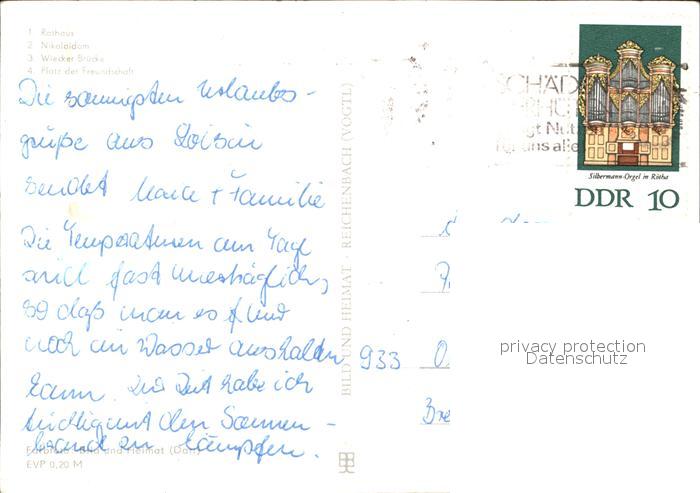 1 Rathaus
2. Nikolaidom
3. Wiecker Brücke
4. Platz der Freundschaft
Die sonnigsten Urlaubs-
grüße aus Loissin
sendet + Familie
Die Temperaturen am Tage
sind fast unerträglich,
so daß man es nur
noch im Wasser aushalten
kann. Zur Zeit habe ich
tüchtig mit dem Sonnen-
brand zu kämpfen.
Bild und Heimat
EVP 0,20 M
BILD UND HEIMAT · REICHENBACH (VOGTL)
SCHÄD
gt Nut
für uns alle
Silbermann-Orgel in Rötha
DDR 10
933 O
Bre
privacy protection
Datenschutz